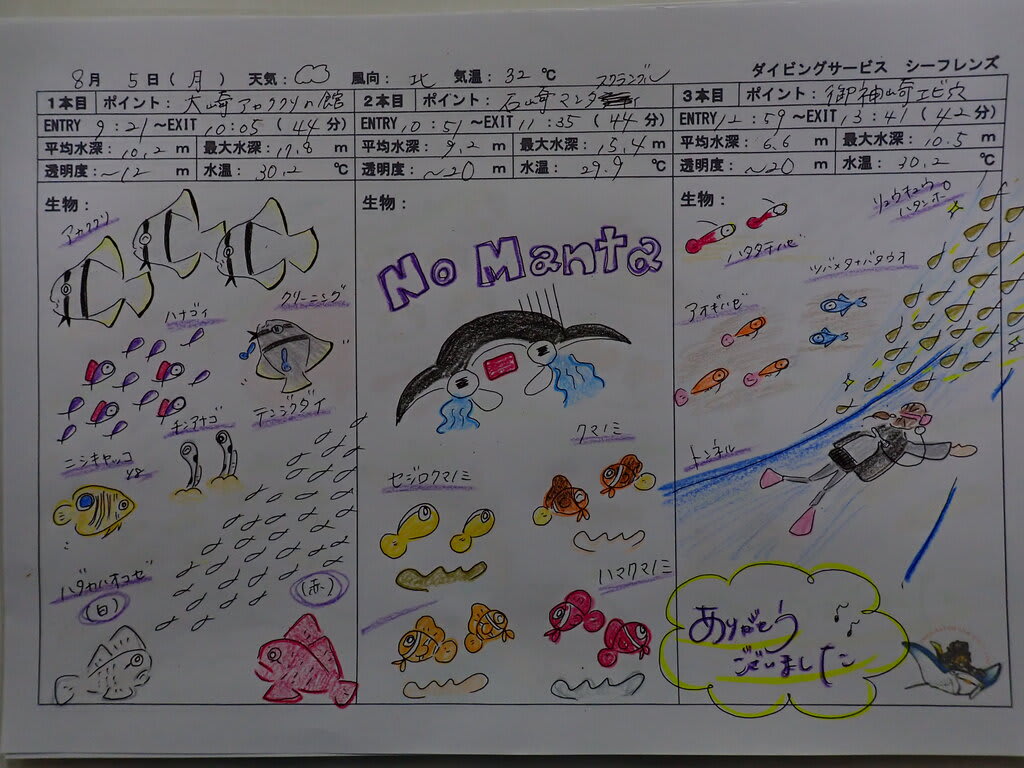 8月 5日(月) 天気: 風向: 北 気温: 32℃ ダイビングサービス シーフレンズ
1本目 ポイント: 大崎アカククリの館
ENTRY 9:21~EXIT 10:05 (44分)
平均水深: 10.2 m 最大水深: 17.8 m
透明度: ~12 m 水温: 30.2 ℃
生物:
アカククリ
ハナゴイ
クリーニング
チンアナゴ
テンジクダイ
ニシキヤッコ
yg
ハダカハオコゼ
(白)
(赤)
スクランブル
2本目 ポイント: 石崎マンタ
ENTRY 10:51~EXIT 11:35 (44分)
平均水深: 9.2 m 最大水深: 15.4 m
透明度: ~20 m 水温: 29.9 ℃
生物:
No Manta
クマノミ
セジロクマノミ
ハマクマノミ
3本目 ポイント: 御神崎エビ穴
ENTRY 12:59~EXIT 13:41 (42分)
平均水深: 6.6 m 最大水深: 10.5 m
透明度: ~20 m 水温: 30.2 ℃
生物:
リュウキュウ
ハタンポ
ハタタテハゼ
ツバメタナバタウオ
アオギハゼ
トンネル
ありがとう
ございました